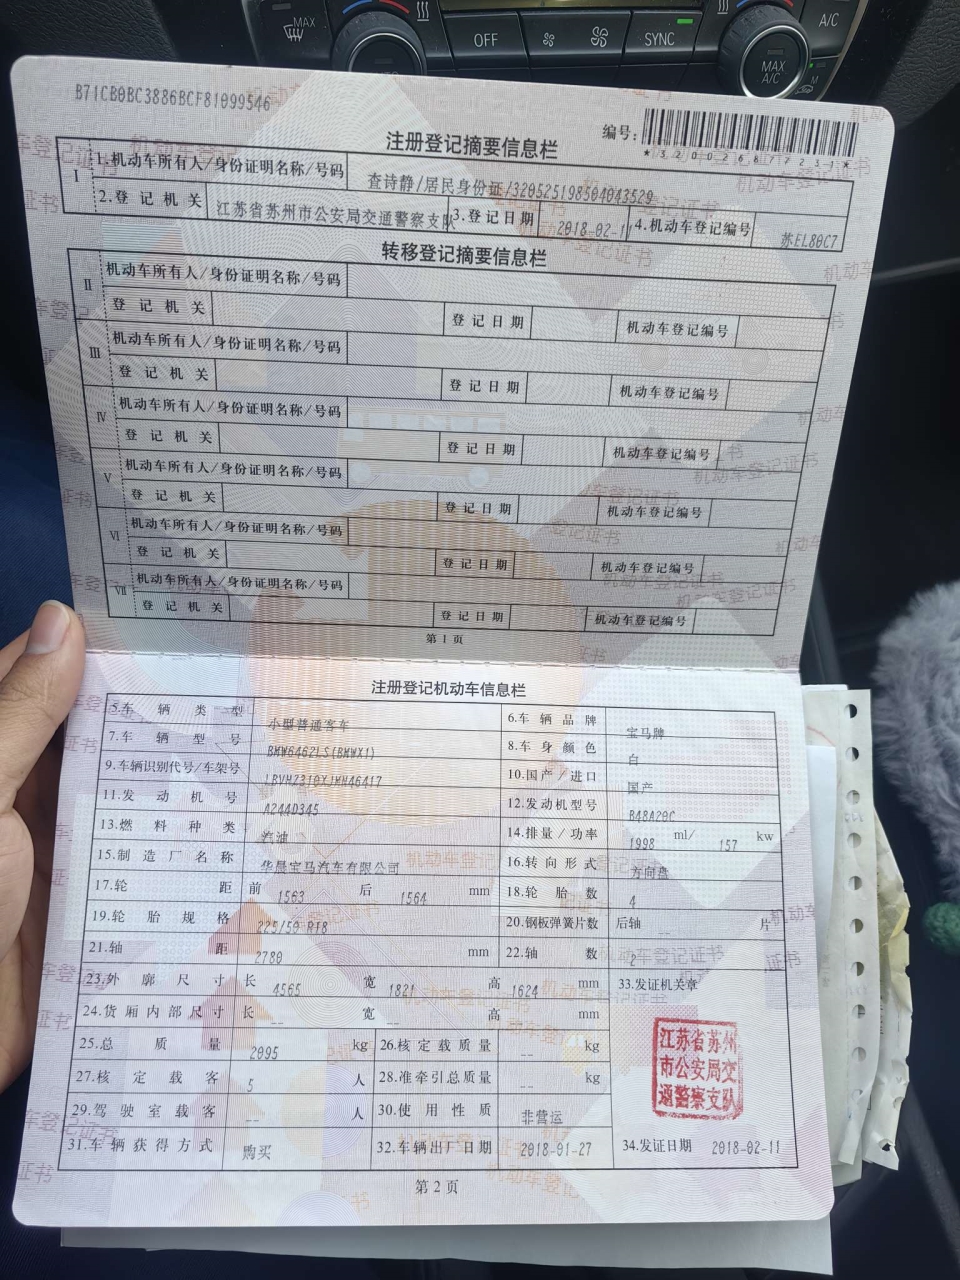 MAX
OFF
SYNC
MAX
A/C
A/C
M
B71CB0BC3886BCF81099546
注册登记摘要信息栏
编号:
*320026877231*
I
1.机动车所有人/身份证明名称/号码
查诗静/居民身份证/320525198504043529
2.登记机关
江苏省苏州市公安局交通警察支队
3.登记日期
2018-02-11
4.机动车登记编号
苏EL80C7
转移登记摘要信息栏
II
机动车所有人/身份证明名称/号码
登记机关
登记日期
机动车登记编号
III
机动车所有人/身份证明名称/号码
登记机关
登记日期
机动车登记编号
IV
机动车所有人/身份证明名称/号码
登记机关
登记日期
机动车登记编号
V
机动车所有人/身份证明名称/号码
登记机关
登记日期
机动车登记编号
VI
机动车所有人/身份证明名称/号码
登记机关
登记日期
机动车登记编号
VII
机动车所有人/身份证明名称/号码
登记机关
登记日期
机动车登记编号
第1页
注册登记机动车信息栏
5.车辆类型 小型普通客车
6.车辆品牌 宝马牌
7.车辆型号 BMW6462LS(BMWX1)
8.车身颜色 白
9.车辆识别代号/车架号
10.国产/进口 国产
11.发动机号 A244D345
12.发动机型号 B48A20C
13.燃料种类 汽油
14.排量/功率 1998 ml/ 157 kw
15.制造厂名称 华晨宝马汽车有限公司
16.转向形式 方向盘
17.轮距 前 1563 后 1564 mm
18.轮胎数 4
19.轮胎规格 225/50 R18
20.钢板弹簧片数 后轴 -- 片
21.轴距 2780 mm
22.轴数 2
23.外廓尺寸 长 4565 宽 1821 高 1624 mm
33.发证机关章
24.货厢内部尺寸 长 -- 宽 -- 高 mm
25.总质量 2095 kg
26.核定载质量 -- kg
27.核定载客 5 人
28.准牵引总质量 -- kg
29.驾驶室载客 -- 人
30.使用性质 非营运
31.车辆获得方式 购买
32.车辆出厂日期 2018-01-27
江苏省苏州
市公安局交
通警察支队
34.发证日期 2018-02-11
第2页